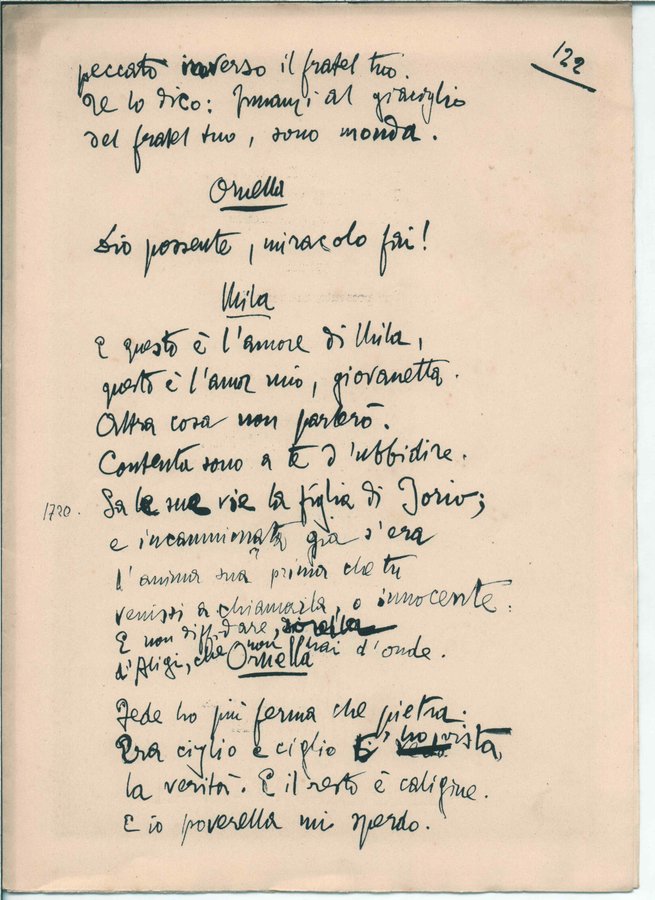 122
peccato inverso il fratel tuo.
Te lo dico: Innanzi al giaciglio
del fratel tuo, sono monda.
Ornella
Dio possente, miracolo fai!
Mila
E questo è l'amore di Mila,
questo è l'amor mio, giovanetta.
Altra cosa non parlerò.
Contenta sono a te d'ubbidire.
1720. Sa le sue vie la figlia di Jorio;
e incamminata già s'era
l'anima sua prima che tu
venissi a chiamarla, o innocente.
E non diffidare, sorella
d'Aligi, che non hai d'onde.
Ornella
Fede ho più ferma che pietra.
Fra ciglio e ciglio t'ho vista
la verità. E il resto è caligine.
E io poverella mi sperdo.